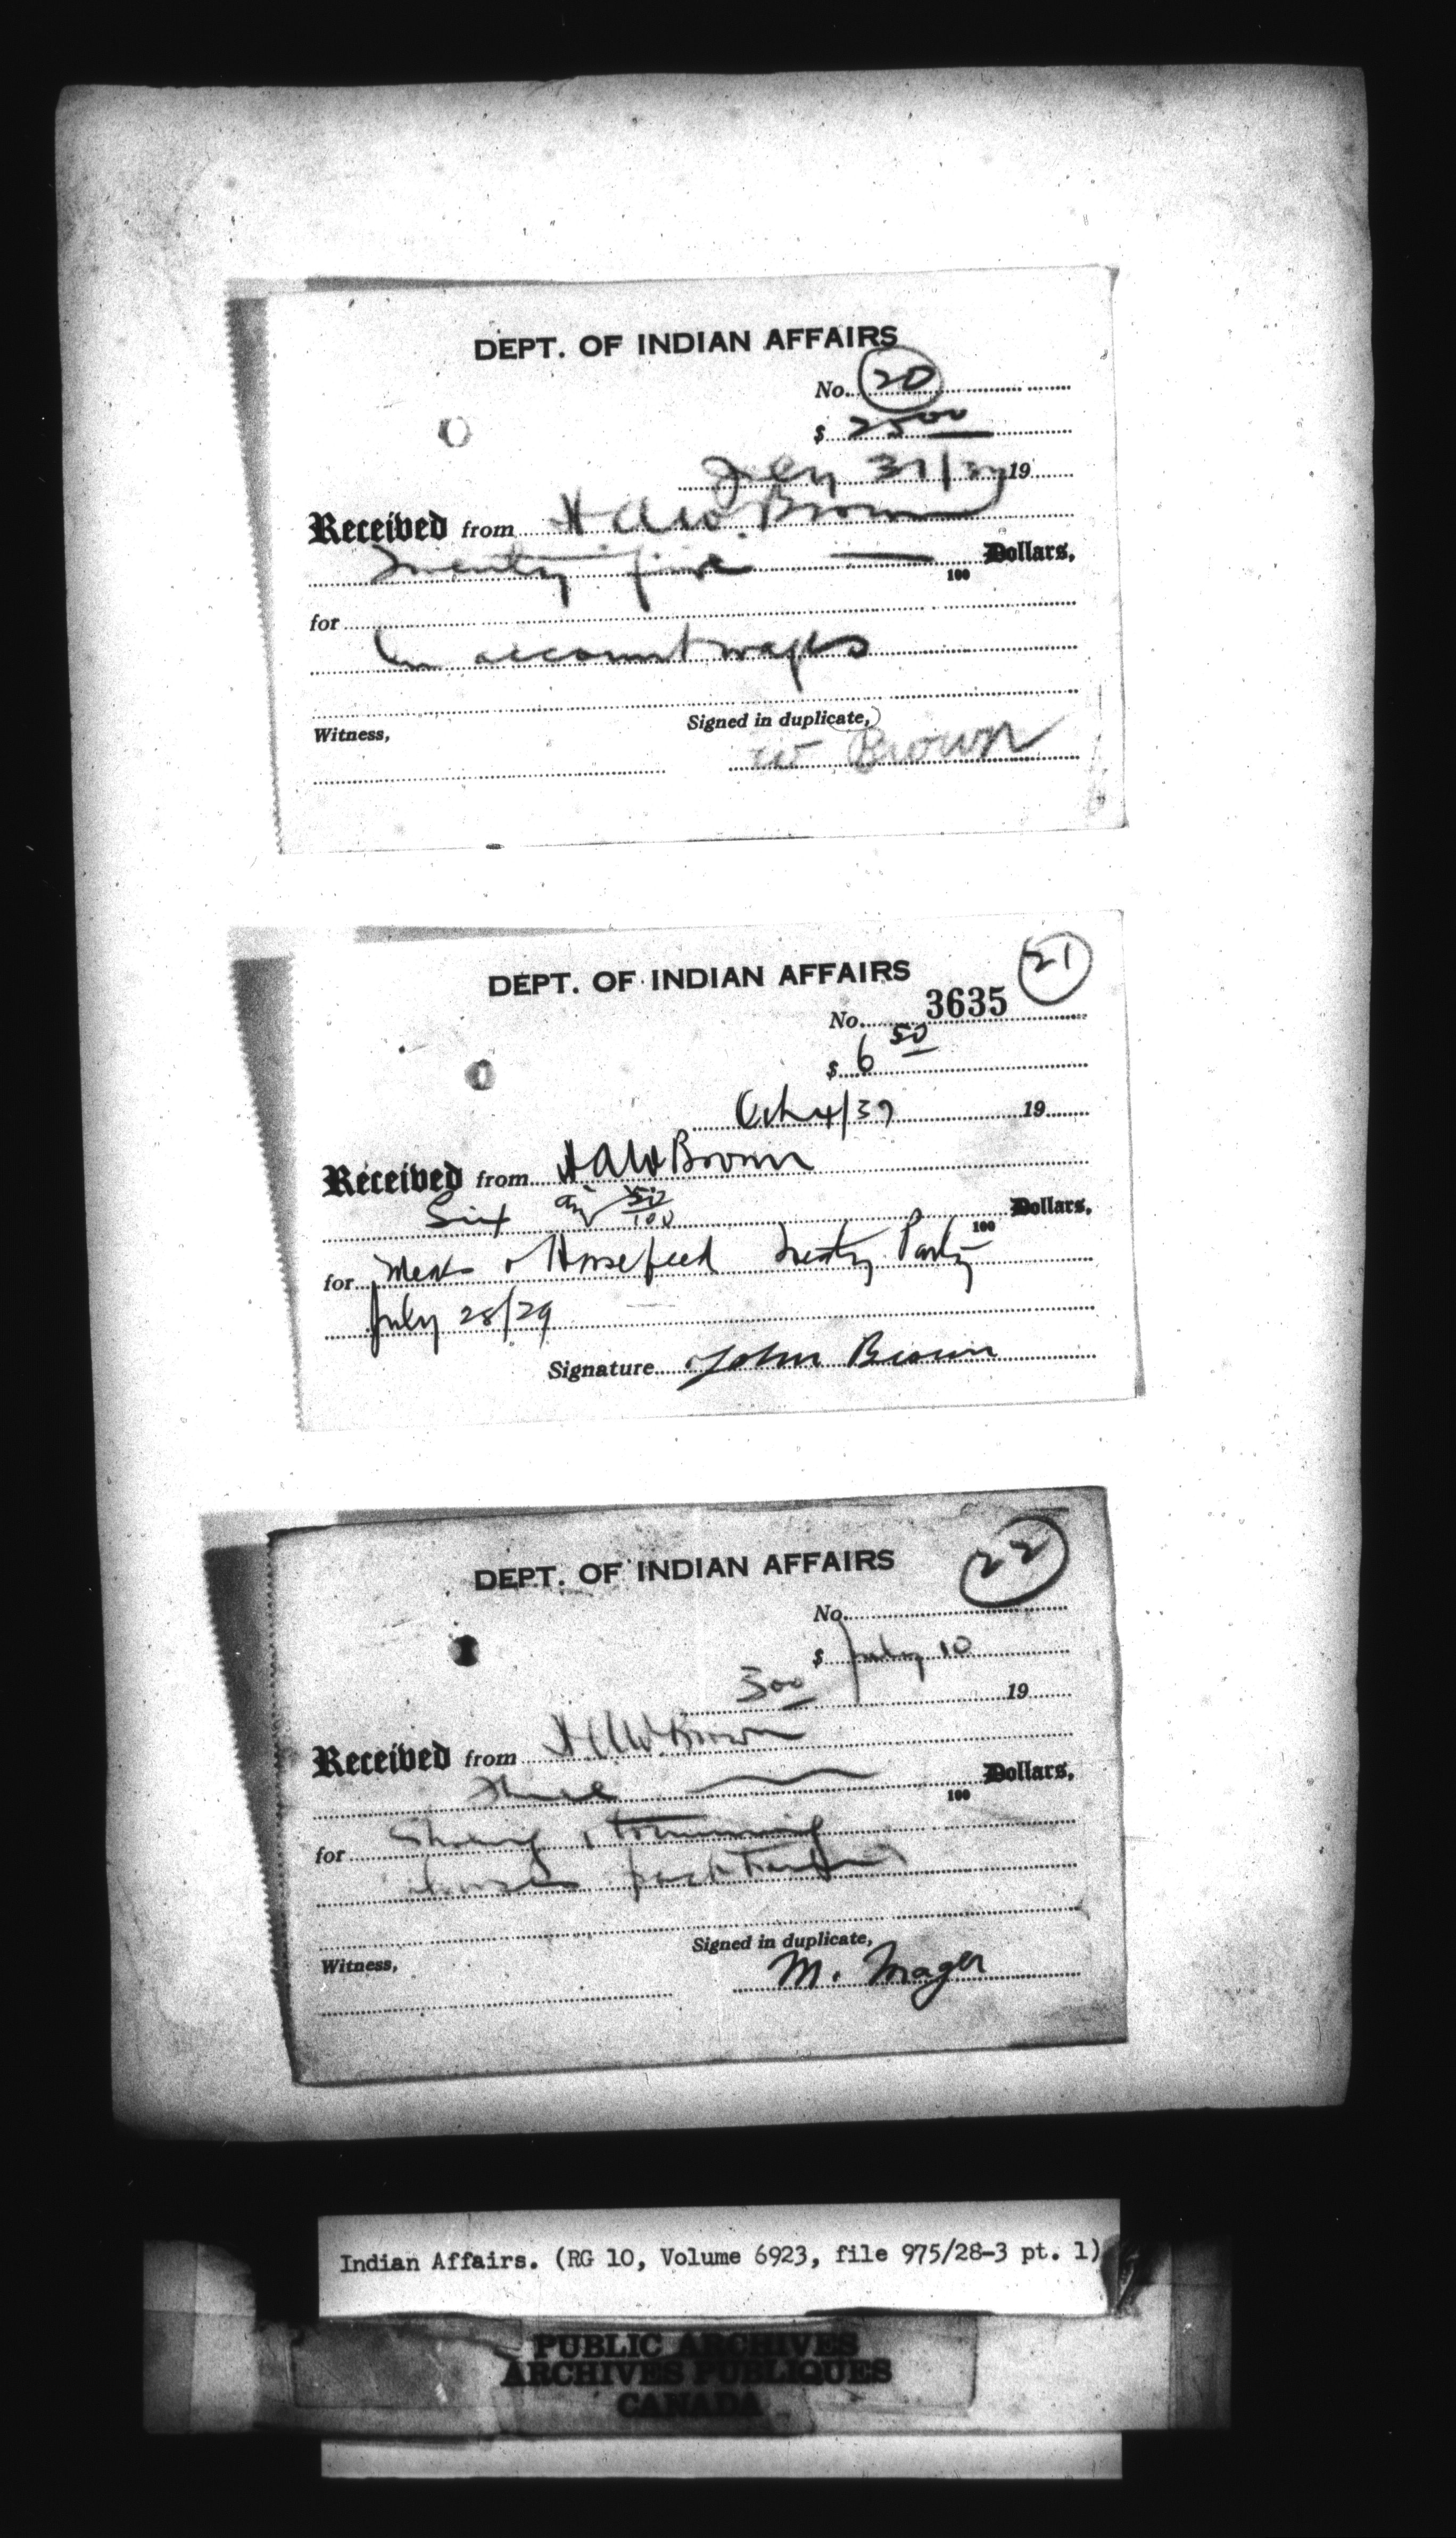 DEPT. OF INDIAN AFFAIRS
No. 20
$ 25 00
July 31/37 19
Received from H A W. Brown
Twenty five — 100 Dollars,
for
On account wages
Signed in duplicate,
Witness,
W Brown
21
DEPT. OF INDIAN AFFAIRS
No. 3635
$ 6 50
Oct 4/37 19
Received from H A W Brown
Six 50/100 100 Dollars,
for Meals & Horsefeed Treaty Party
July 28/29
Signature John Brown
22
DEPT. OF INDIAN AFFAIRS
No.
$ July 10
3 00 19
Received from H A W. Brown
Three 100 Dollars,
for Shoeing & trimming
horses
Signed in duplicate,
Witness,
M. Mager
Indian Affairs. (RG 10, Volume 6923, file 975/28-3 pt. 1)
PUBLIC ARCHIVES
ARCHIVES PUBLIQUES
CANADA